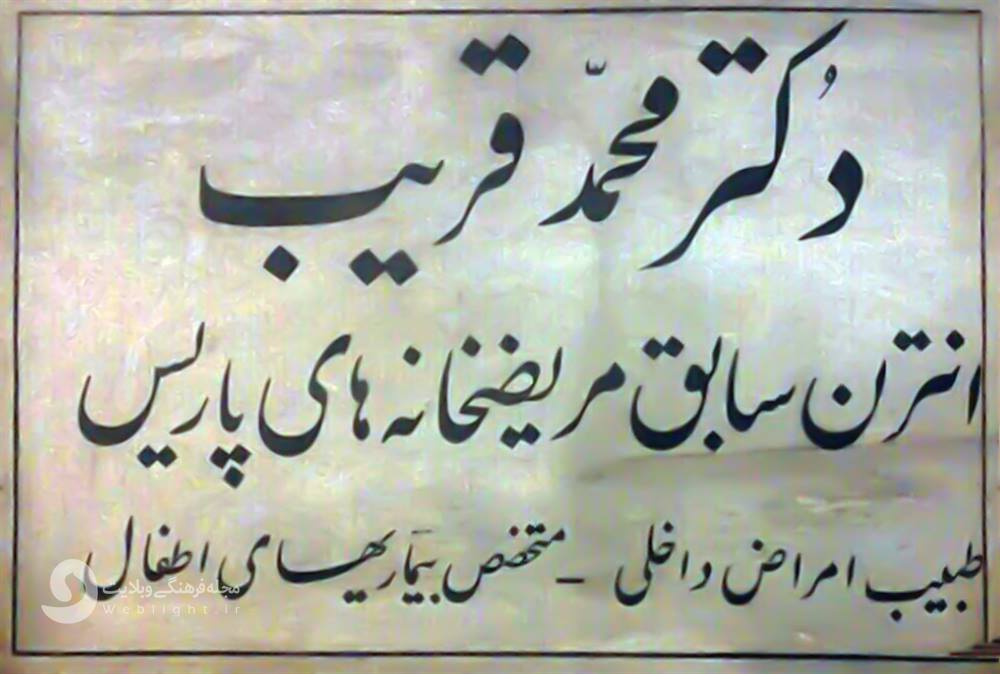 دُکتر محمّد قریب
انترن سابق مریضخانه های پاریس
طبیب امراض داخلی - متخصص بیماریهای اطفال
مجله فرهنگی وبلایت
Weblight.ir